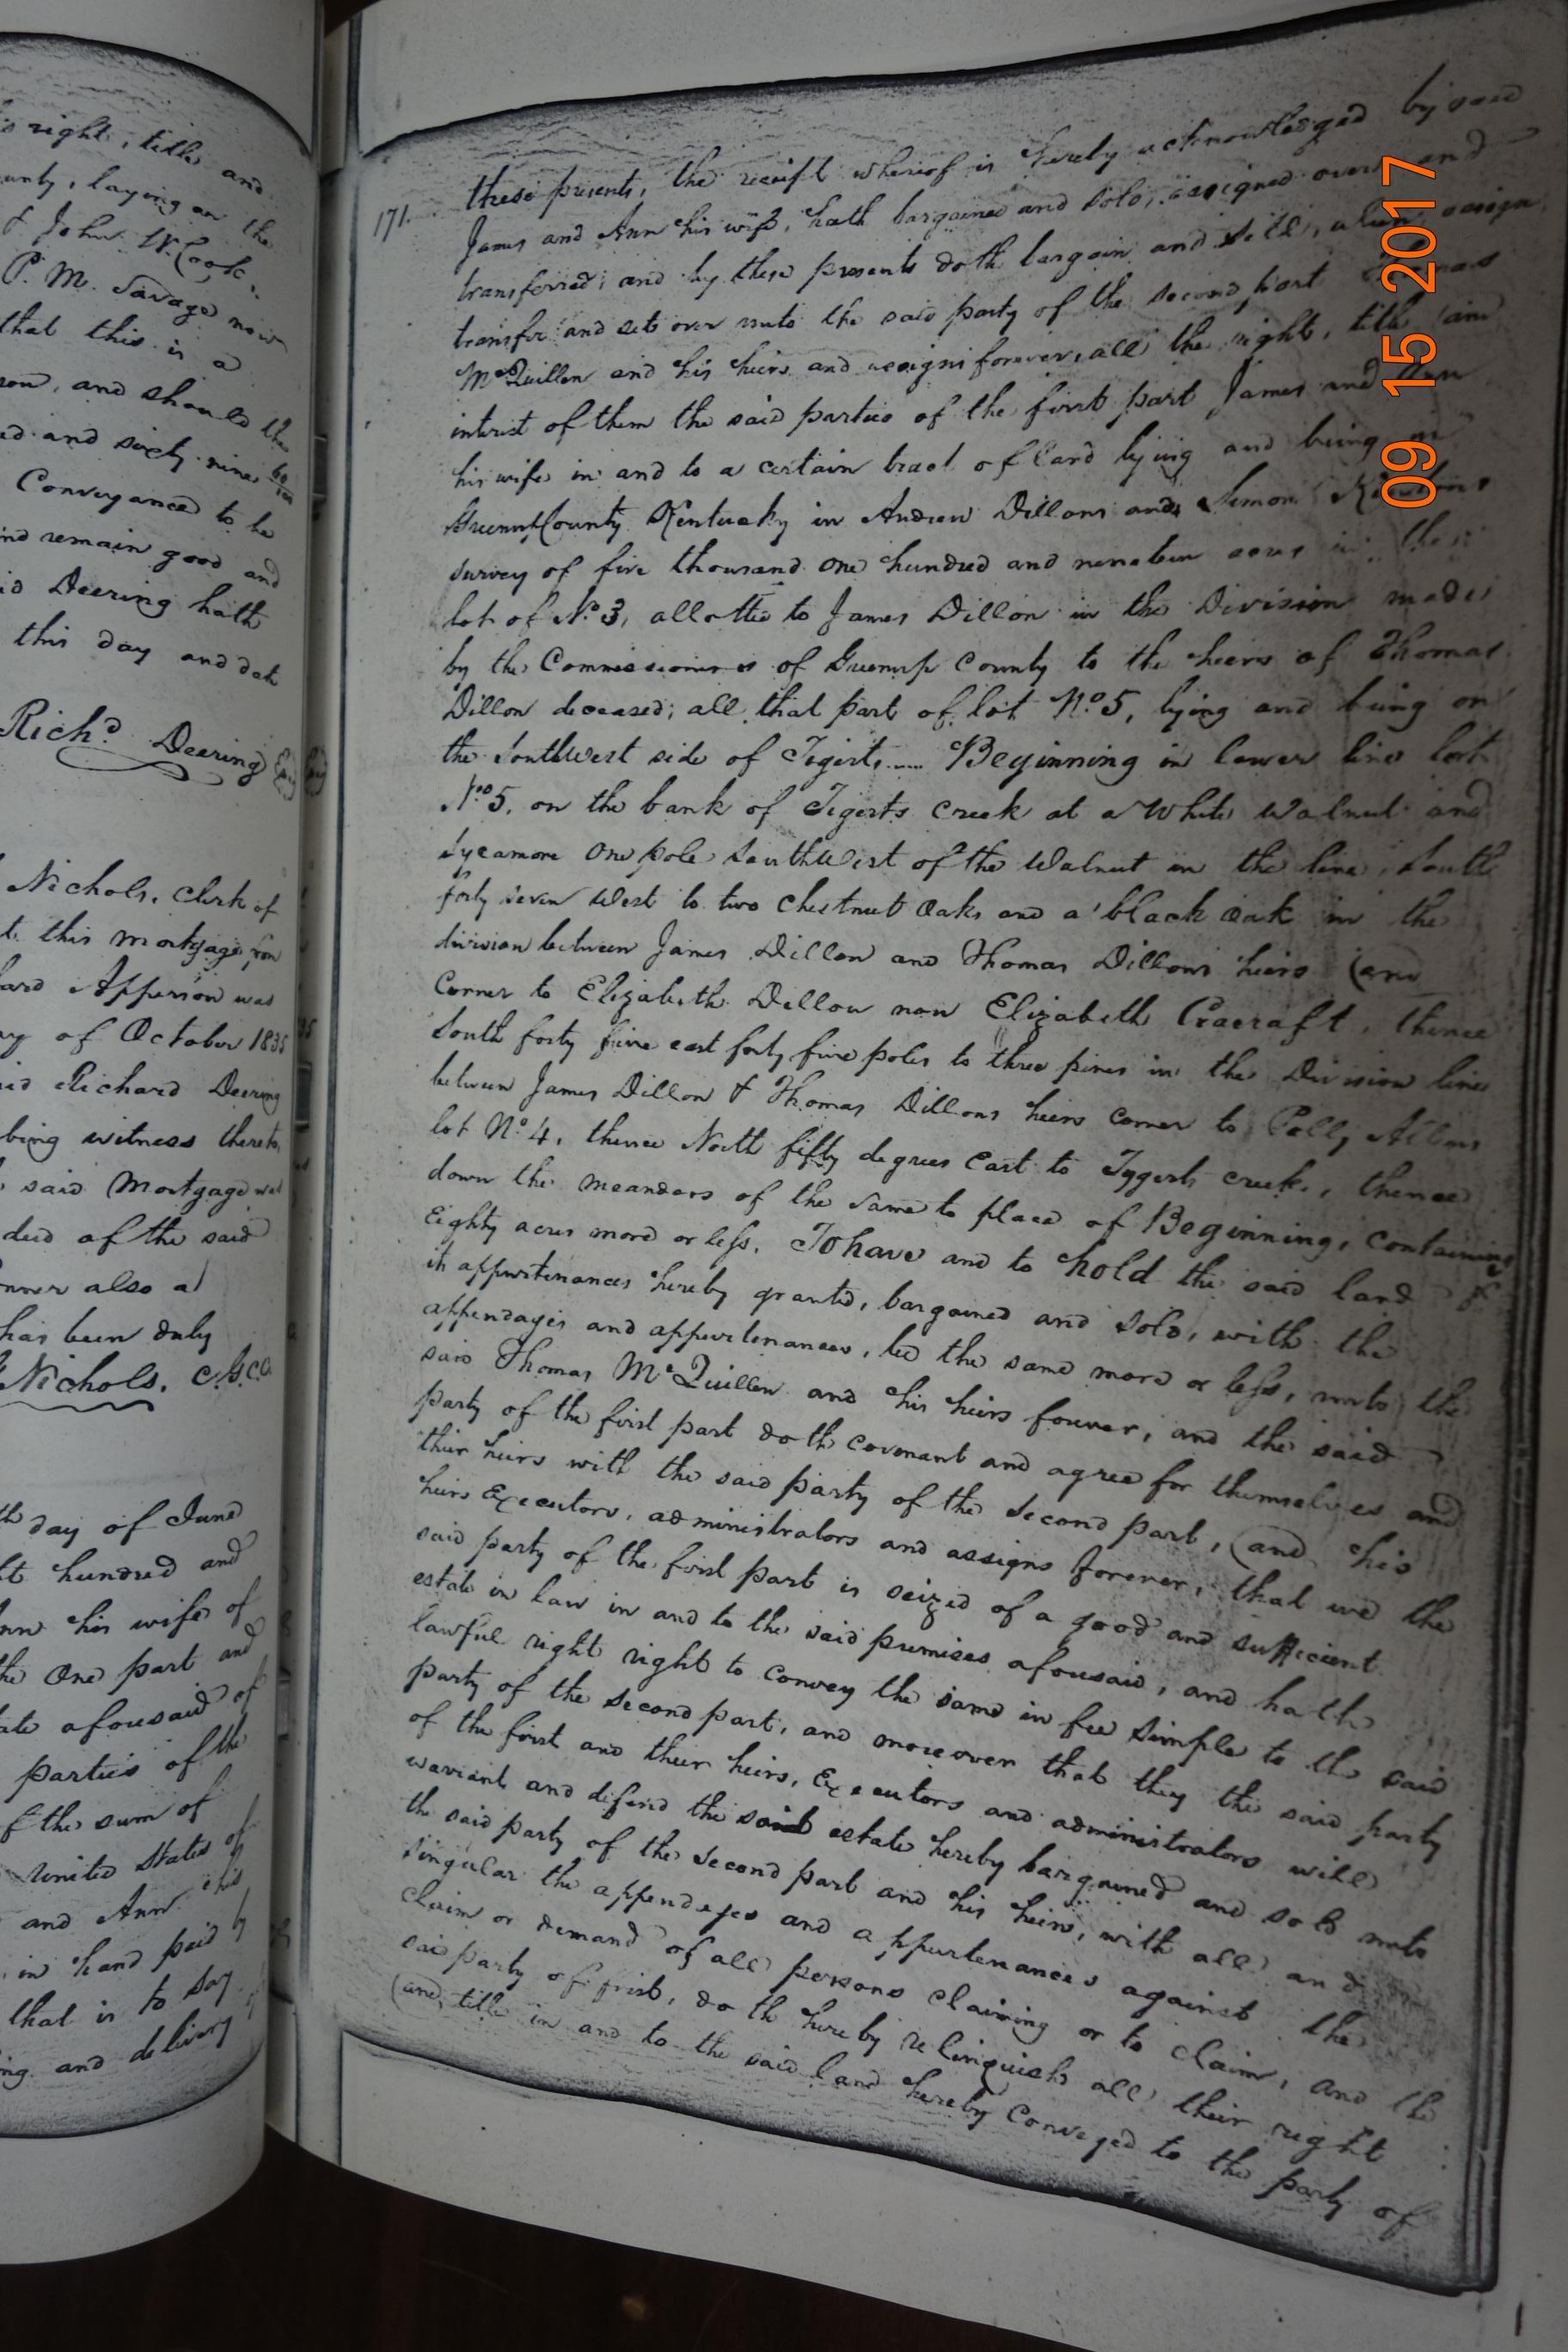 right, title and
laying on the
John W. Cook,
P. M. Savage now
that this is a
and should the
and sixty nine
Conveyance to be
and remain good and
Deering hath
this day and date
Rich.d Deering
Nichols, Clerk of
this mortgage from
Apperson was
of October 1835
Richard Deering
being witness thereto,
said Mortgage was
deed of the said
also a
has been duly
Nichols, C.G.C.C.
day of June
hundred and
Ann his wife of
the One part and
aforesaid of
parties of the
of the sum of
United States of
and Ann his
in hand paid by
that is to say
and delivery
171.
these presents, the receipt whereof is hereby acknowledged by said
James and Ann his wife, hath bargained and sold, assigned over and
transferred; and by these presents doth bargain and sell, alien, assign
transfer and sets over unto the said party of the second part Thomas
McQuillen and his heirs and assigns forever, all the right, title and
interist of them the said parties of the first part James and Ann
his wife in and to a certain tract of land lying and being in
Greenup County Kentucky in Andrew Dillons and Simon Kentons
survey of five thousand one hundred and nineteen acres in the
lot of No. 3, allotted to James Dillon in the Division made
by the Commissioners of Greenup County to the heirs of Thomas
Dillon deceased; all that part of lot No. 5, lying and being on
the Southwest side of Tigirts .... Beginning in lower line lot
No. 5, on the bank of Tigerts creek at a White Walnut and
Sycamore One pole SouthWest of the Walnut in the line, South
forty seven West to two Chestnut Oaks and a black Oak in the
division between James Dillon and Thomas Dillons heirs (and
Corner to Elizabeth Dillow now Elizabeth Cracraft, thence
South forty five east forty five poles to three pines in the Division line
between James Dillon & Thomas Dillons heirs corner to Polly Allens
lot No. 4, thence North fifty degrees East to Tygerts creek, thence
down the meanders of the same to place of Beginning, containing
Eighty acres more or less, To have and to hold the said land &
it appurtenances hereby granted, bargained and sold, with the
appendages and appurtenances, be the same more or less, unto the
said Thomas McQuillen and his heirs forever, and the said
party of the first part doth covenant and agree for themselves and
their heirs with the said party of the second part, (and his
heirs Executors, administrators and assigns forever, that we the
said party of the first part is seized of a good and sufficient
estate in law in and to the said premises aforesaid, and hath
lawful right right to convey the same in fee simple to the said
party of the second part, and moreover that they the said party
of the first and their heirs, Executors and administrators will
warrant and defend the said estate hereby bargained and sold unto
the said party of the second part and his heirs, with all and
singular the appendages and appurtenances against the
claim or demand of all persons claiming or to claim, and the
said party of first, doth hereby relinquish all their right
(and title in and to the said land hereby Conveyed to the party of
09 15 2017